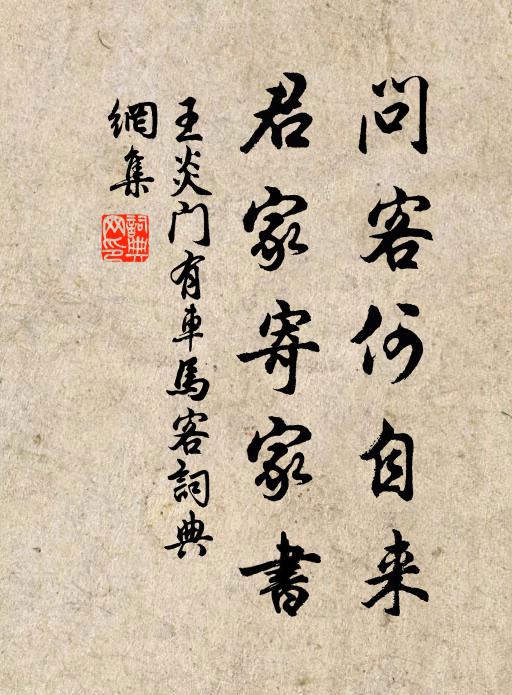 問客何自来
君家寄家書
王炎门有車馬客詞典
網集
詞典
网印